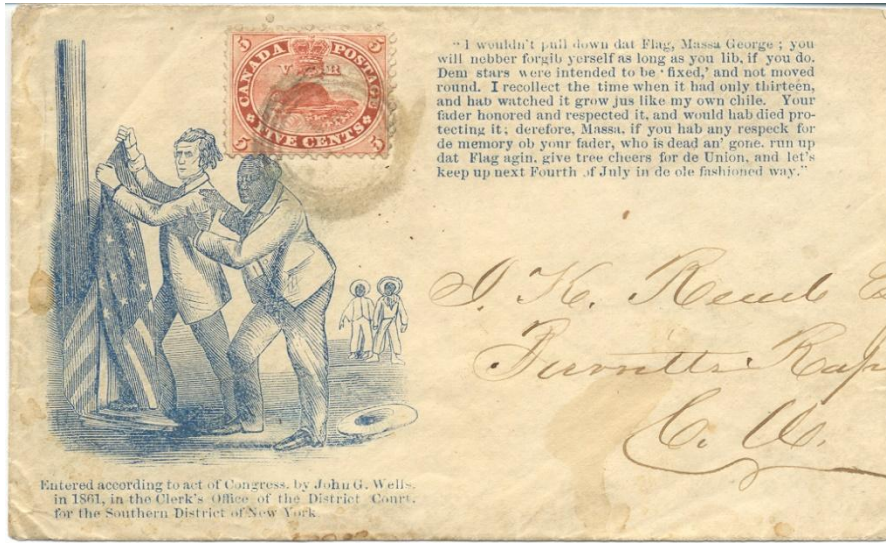 5 CANADA POSTAGE 5
V R
5 FIVE CENTS 5
"I wouldn't pull down dat Flag, Massa George ; you
will nebber forgib yerself as long as you lib, if you do.
Dem stars were intended to be 'fixed,' and not moved
round. I recollect the time when it had only thirteen,
and hab watched it grow jus like my own chile. Your
fader honored and respected it, and would hab died pro-
tecting it; derefore, Massa, if you hab any respeck for
de memory ob your fader, who is dead an' gone, run up
dat Flag agin, give tree cheers for de Union, and let's
keep up next Fourth of July in de ole fashioned way."
J. K.
C. W.
Entered according to act of Congress, by John G. Wells,
in 1861, in the Clerk's Office of the District Court,
for the Southern District of New York.